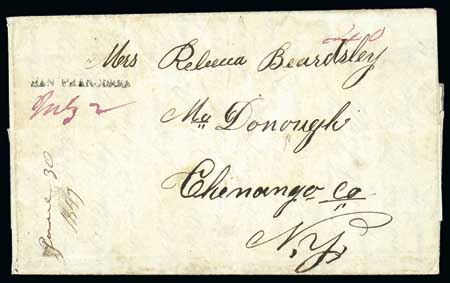 Mrs Rebecca Beardsley
40
SAN FRANCISCO
July 2
Mc Donough
Chenango Co
N.Y.
June 30
1849